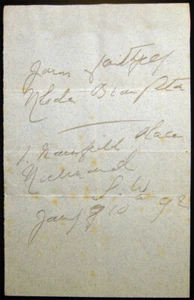 Yours faithfully
Rhoda Broughton
1 Mansfield Place
Richmond
S. W.
Jany
92